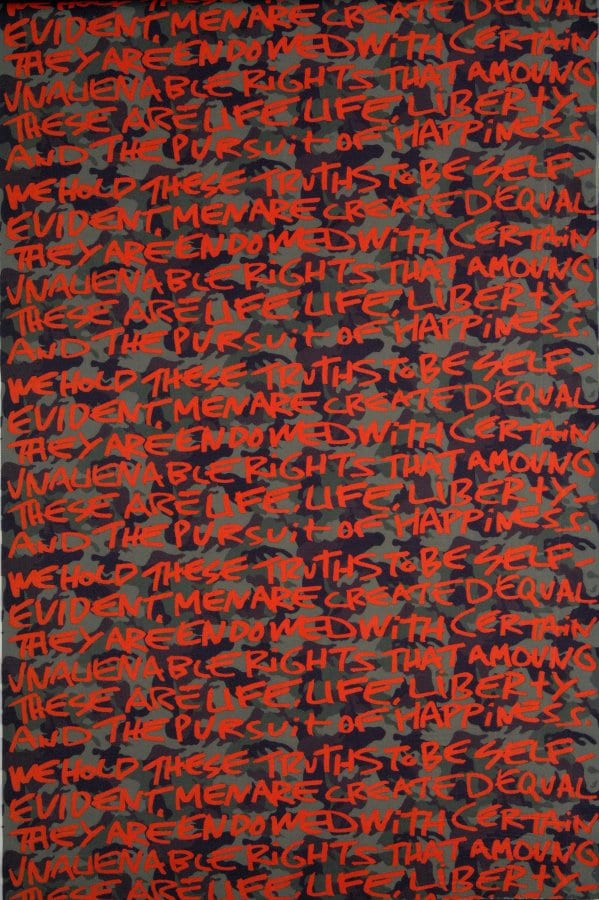 EVIDENT, MEN ARE CREATE DEQUAL
THEY ARE ENDOWED WITH CERTAIN
UNALIENABLE RIGHTS THAT AMOUNG
THESE ARE LIFE LIFE, LIBERTY-
AND THE PURSUIT OF HAPPINESS.
WE HOLD THESE TRUTHS TO BE SELF-
EVIDENT, MEN ARE CREATE DEQUAL
THEY ARE ENDOWED WITH CERTAIN
UNALIENABLE RIGHTS THAT AMOUNG
THESE ARE LIFE LIFE, LIBERTY-
AND THE PURSUIT OF HAPPINESS.
WE HOLD THESE TRUTHS TO BE SELF-
EVIDENT, MEN ARE CREATE DEQUAL
THEY ARE ENDOWED WITH CERTAIN
UNALIENABLE RIGHTS THAT AMOUNG
THESE ARE LIFE LIFE, LIBERTY-
AND THE PURSUIT OF HAPPINESS.
WE HOLD THESE TRUTHS TO BE SELF-
EVIDENT, MEN ARE CREATE DEQUAL
THEY ARE ENDOWED WITH CERTAIN
UNALIENABLE RIGHTS THAT AMOUNG
THESE ARE LIFE LIFE, LIBERTY-
AND THE PURSUIT OF HAPPINESS.
WE HOLD THESE TRUTHS TO BE SELF-
EVIDENT, MEN ARE CREATE DEQUAL
THEY ARE ENDOWED WITH CERTAIN
UNALIENABLE RIGHTS THAT AMOUNG
THESE ARE LIFE LIFE, LIBERTY-